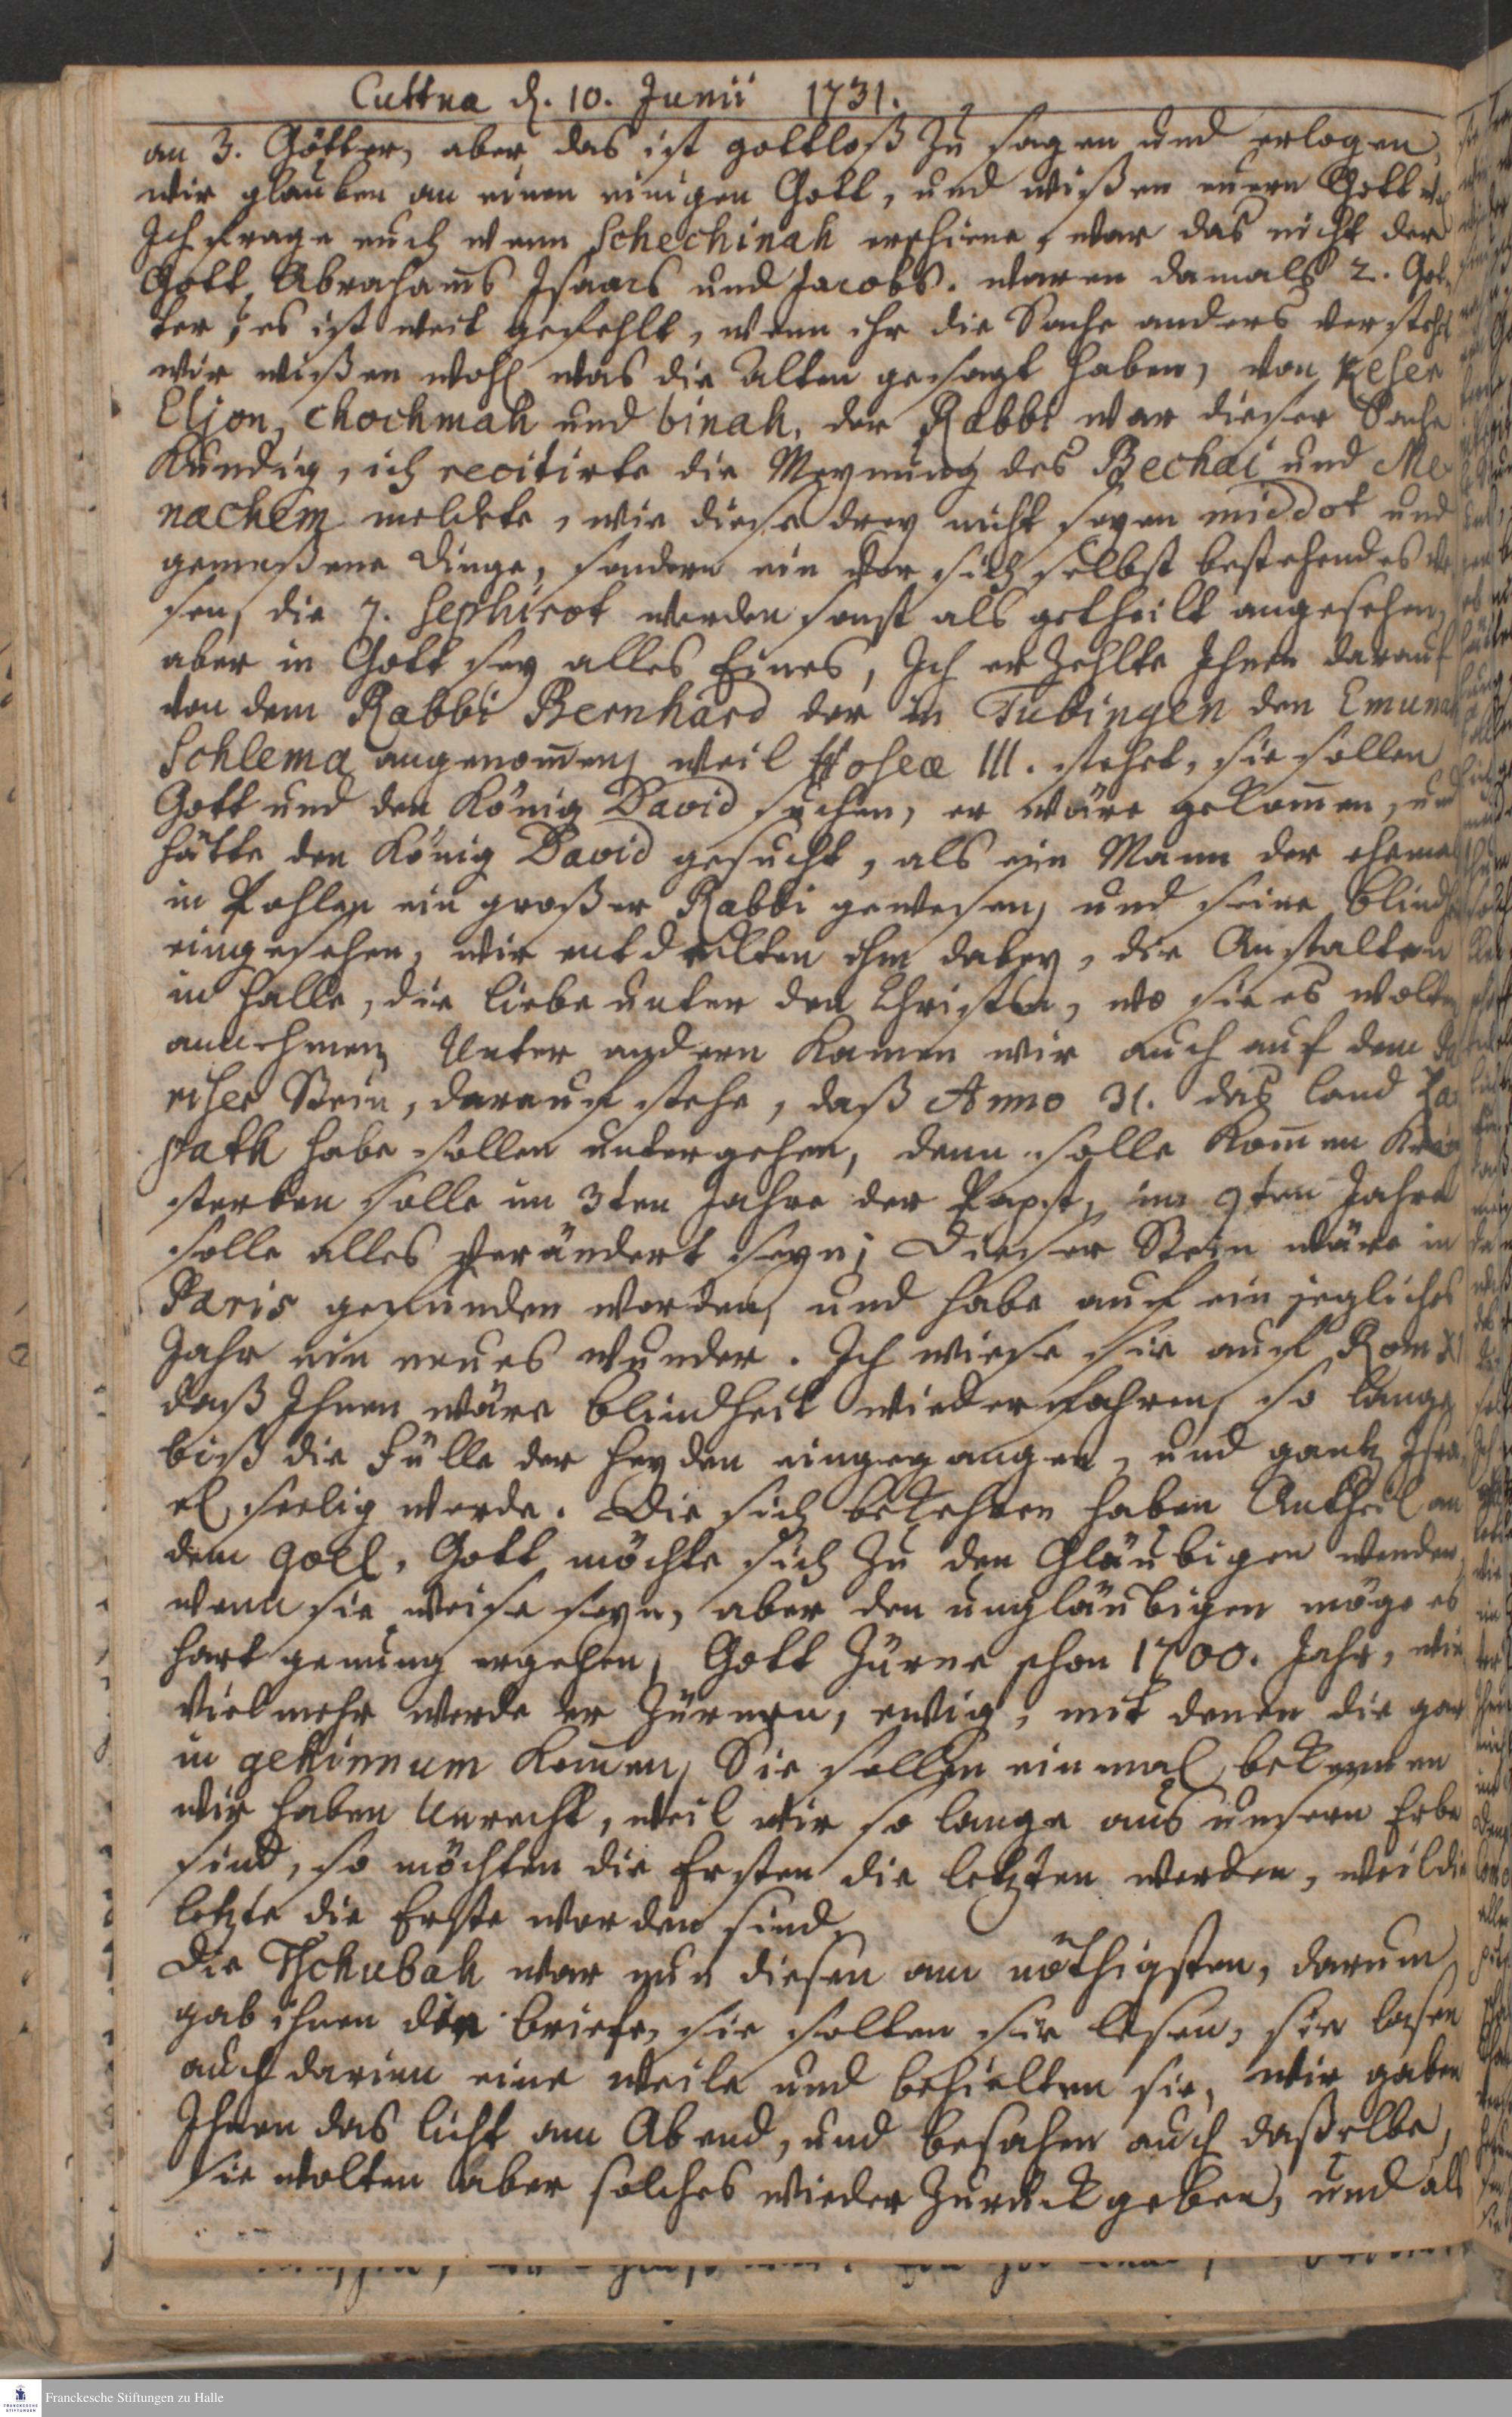 Cuttna d. 10. Junii 1731.
an 3. Götter, aber das ist gottloß zu sagen und erlogen,
wir glauben an einen einigen Gott, und wißen euern Gott
Ich frage euch wenn Schechinah erschiene, war das nicht der
Gott, Abrahams Isaacs und Jacobs. waren damals 2. Göt-
ter, es ist weit gefehlt, wenn ihr die Sache anders verstehet
wir wißen wohl was die Alten gesagt haben, von Keser
Eljon, chochmah und binah, der Rabbi war dieser Sache
kundig, ich recitirte die Meynung des Bechai und Me
nachem meldete, wie diese drey nicht seyen middot und
gemeßene Dinge, sondern ein vor sich selbst bestehendes We
sen, die 7. Sephirot werden sonst als getheilt angesehen,
aber in Gott sey alles Eines, Ich erzehlte Ihnen darauf
von dem Rabbi Bernhard der in Tubingen den Emunah
Schlema angenomen, weil Hoseæ III. stehet, sie sollen
Gott und den König David suchen, er wäre gekomen, und
hätte den König David gesucht, als ein Mann der ehemals
in Pohlen ein großer Rabbi gewesen, und seine Blindheit
eingesehen, wir entdeckten ihm dabey, die Anstalten
in Halle, die Liebe unter den Christen, wo sie es wolten
annehmen, Unter andern kamen wir auch auf dem
riser Stein, darauf stehe, daß Anno 31. das Land
path habe sollen untergehen, denn solle komen Krieg
sterben solle im 3ten Jahre der Papst, im 9ten Jahre
solle alles verändert seyn; Dieser Stein wäre in
Paris gefunden worden, und habe auf ein jegliches
Jahr ein neues Wunder. Ich wiese sie auf Rom XI
daß Ihnen wäre Blindheit wiederfahren, so lange
biß die Fülle der Heyden eingegangen, und gantz Isra-
el seelig werde. Die sich bekehren haben Antheil an
dem Goel, Gott möchte sich zu den Gläubigen wenden,
wenn sie weise seyn, aber den ungläubigen möge es
hart genung ergehen, Gott zürne schon 1700. Jahr, wie
vielmehr werde er zürnen, ewig, mit denen die gar
in gehinnum komen, Sie sollten einmal bekennen
wir haben Unrecht, weil wir so lange aus unserm Erbe
sind, so möchten die Ersten die letzten werden, weil die
letzte die Erste worden sind.
Die Tschubah war nun diesen am nöthigsten, darum
gab ihnen die briefe, sie solten sie lesen, sie lasen
auch darinn eine Weile und behielten sie, wir gaben
Ihnen das Licht am Abend, und besahen auch daßelbe,
sie wolten aber solches wieder zurückgeben, und als
Franckesche Stiftungen zu Halle